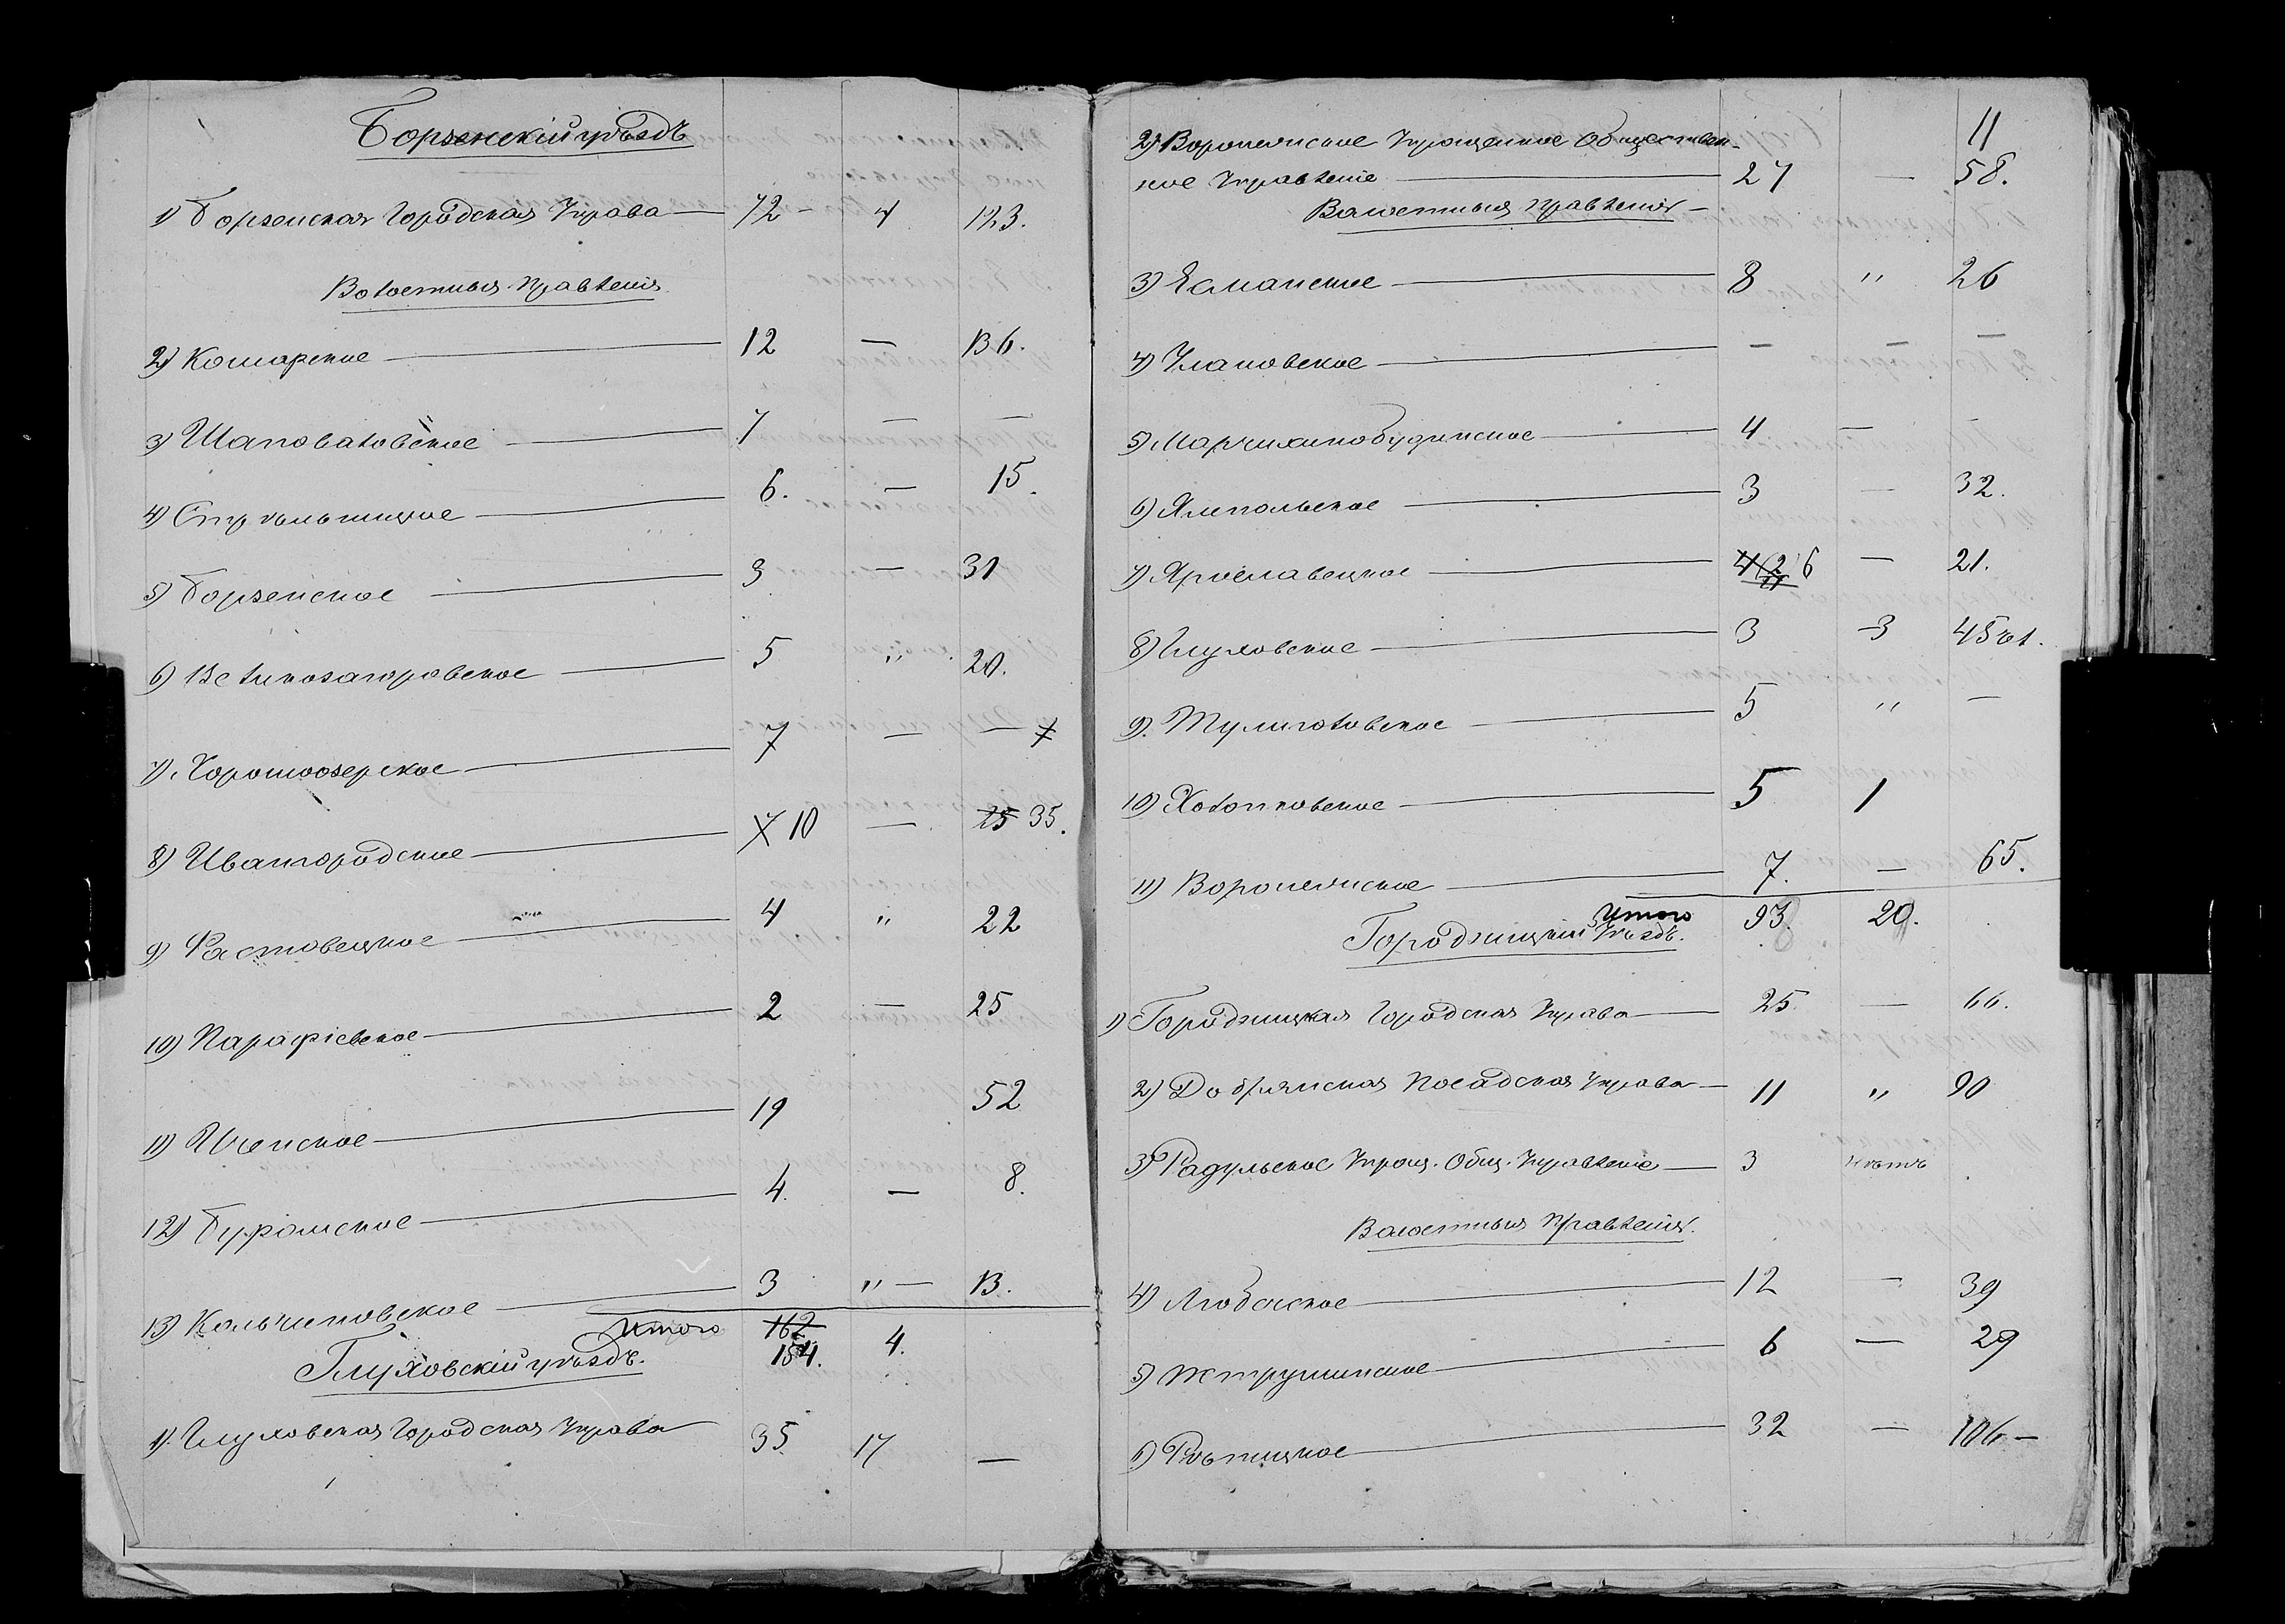 Борзенскій уѣздъ
1) Борзенская Городская Управа — 72 - 4 123.
Волостныя Правленія
2) Комарское — 12 — 136.
3) Шаповаловское — 7 — —
4) Стрѣльницкое — 6. — 15.
5) Борзенское — 3 — 31
6) Великозагоровское — 5 " 20.
7) Хорошоозерское — 7 — — 7
8) Ивангородское — 7 10 — 25 35.
9) Фастовецкое — 4 " 22
10) Парафіевское — 2 — 25
11) Иченское — 19 52
12) Буромское — 4. — 8.
13) Кольчиновское — 3 " — 13.
Итого 162 4.
154.
Глуховскій уѣздъ.
1). Глуховская Городская Управа 35. 17 —
11
2) Воронежское Упрощенное Обществен-
ное Управленіе — 27 — 58.
Волостныя Правленія —
3) Эсманское — 8 " 26
4) Улановское — — — —
5) Марчихинобудинское — 4 — -
6) Ямпольское — 3 — 32.
7) Ярославецкое — 6 — 21.
8) Глуховское — 3 -3 45 чел.
9). Тулиголовское — 5 " —
10) Холопковское — 5 1
11) Воронежское — 7. — 65.
Итого 93. 20.
Городницкій Уѣздъ.
1) Городницкая Городская Управа — 25. — 66.
2) Добрянская Посадская Управа — 11 " 90
3) Радульское Упрощ. Общ. Управленіе — 3 Нѣтъ
Волостныя Правленія.
4) Любечское — 12 — 39
5) Петрушинское — 6 — 29
6) Рѣпицкое — 32 — 106 —